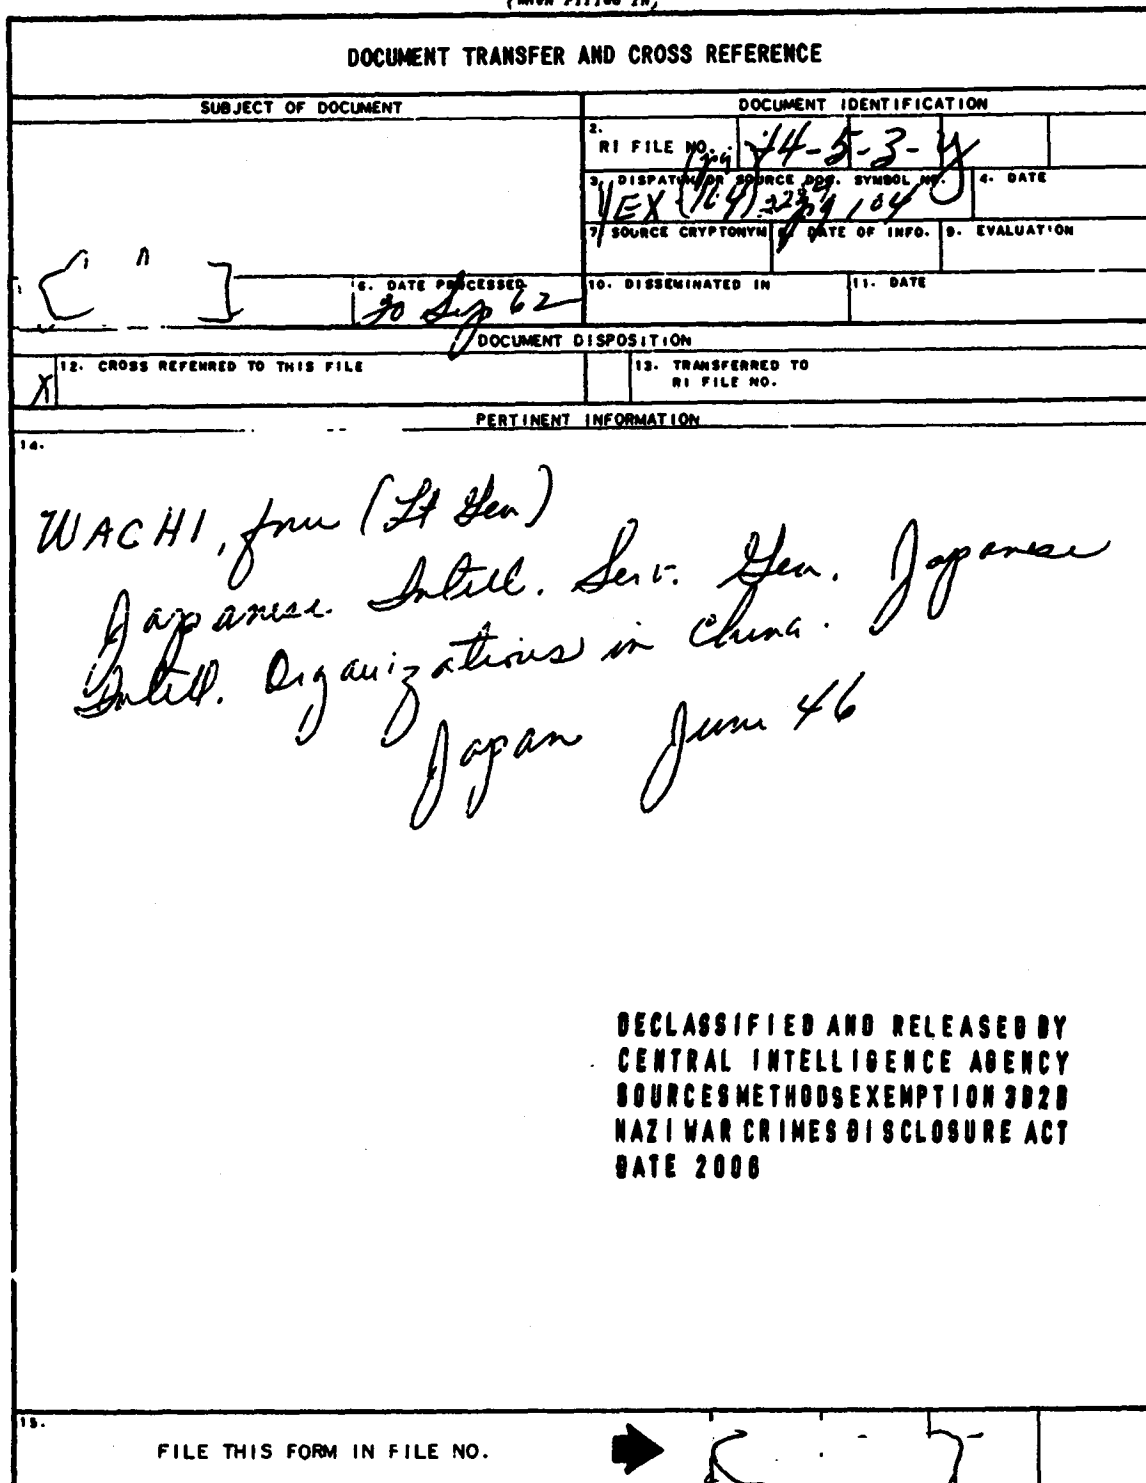 (WHEN FILLED IN)
DOCUMENT TRANSFER AND CROSS REFERENCE
SUBJECT OF DOCUMENT
DOCUMENT IDENTIFICATION
2. RI FILE NO.
74-5-3-
3. DISPATCH OR SOURCE DOC. SYMBOL NO.
4. DATE
pg 104
7. SOURCE CRYPTONYM
8. DATE OF INFO.
9. EVALUATION
6. DATE PROCESSED
20 Sep 62
10. DISSEMINATED IN
11. DATE
DOCUMENT DISPOSITION
X
12. CROSS REFERRED TO THIS FILE
13. TRANSFERRED TO
RI FILE NO.
PERTINENT INFORMATION
14.
WACHI, fnu (Lt Gen)
Japanese Intell. Serv. Gen. Japanese
Intell. Organizations in China.
Japan June 46
DECLASSIFIED AND RELEASED BY
CENTRAL INTELLIGENCE AGENCY
SOURCES METHODS EXEMPTION 3B2B
NAZI WAR CRIMES DISCLOSURE ACT
DATE 2006
15.
FILE THIS FORM IN FILE NO.